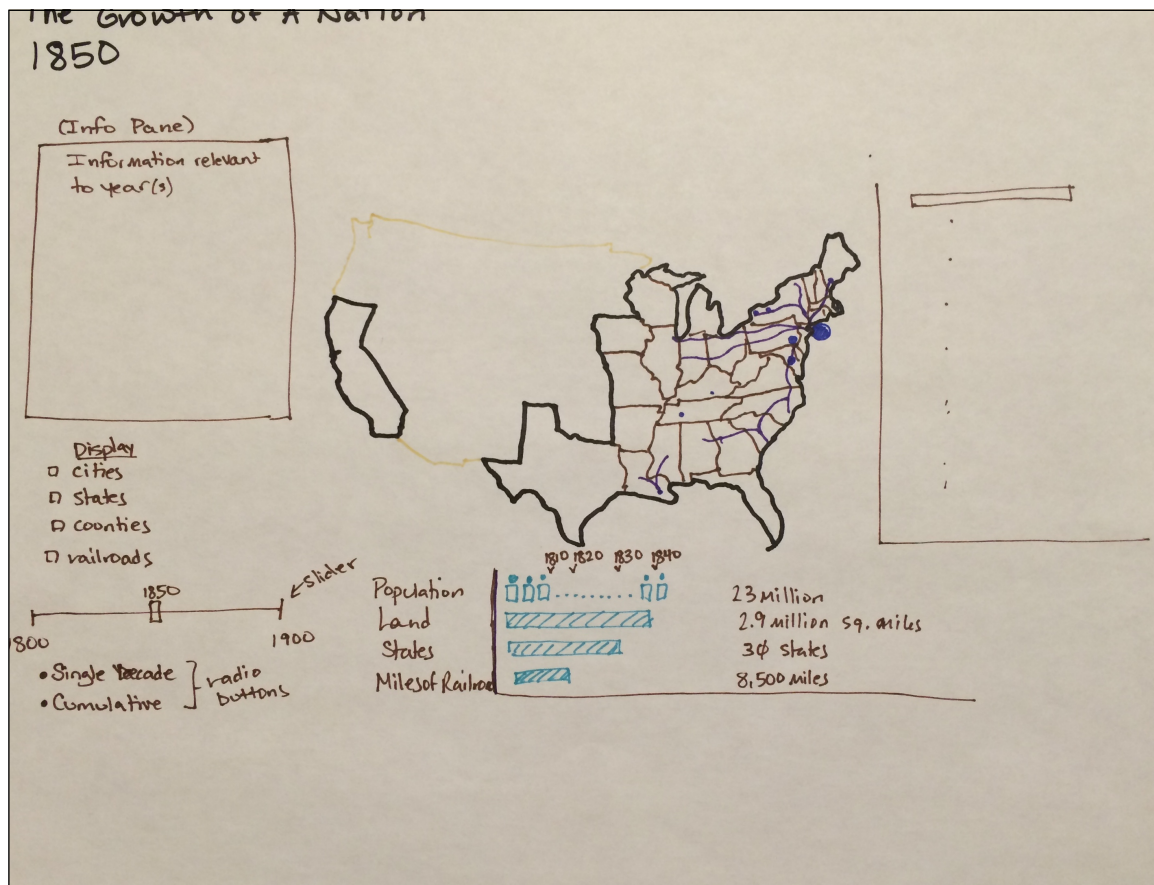 The Growth of A Nation
1850
(Info Pane)
Information relevant
to year(s)
Display
cities
states
counties
railroads
1850
slider
1800
1900
Single Decade
Cumulative
radio
buttons
1810 1820 1830 1840
Population 23 Million
Land 2.9 million sq. miles
States 30 states
Miles of Railroad 8,500 miles